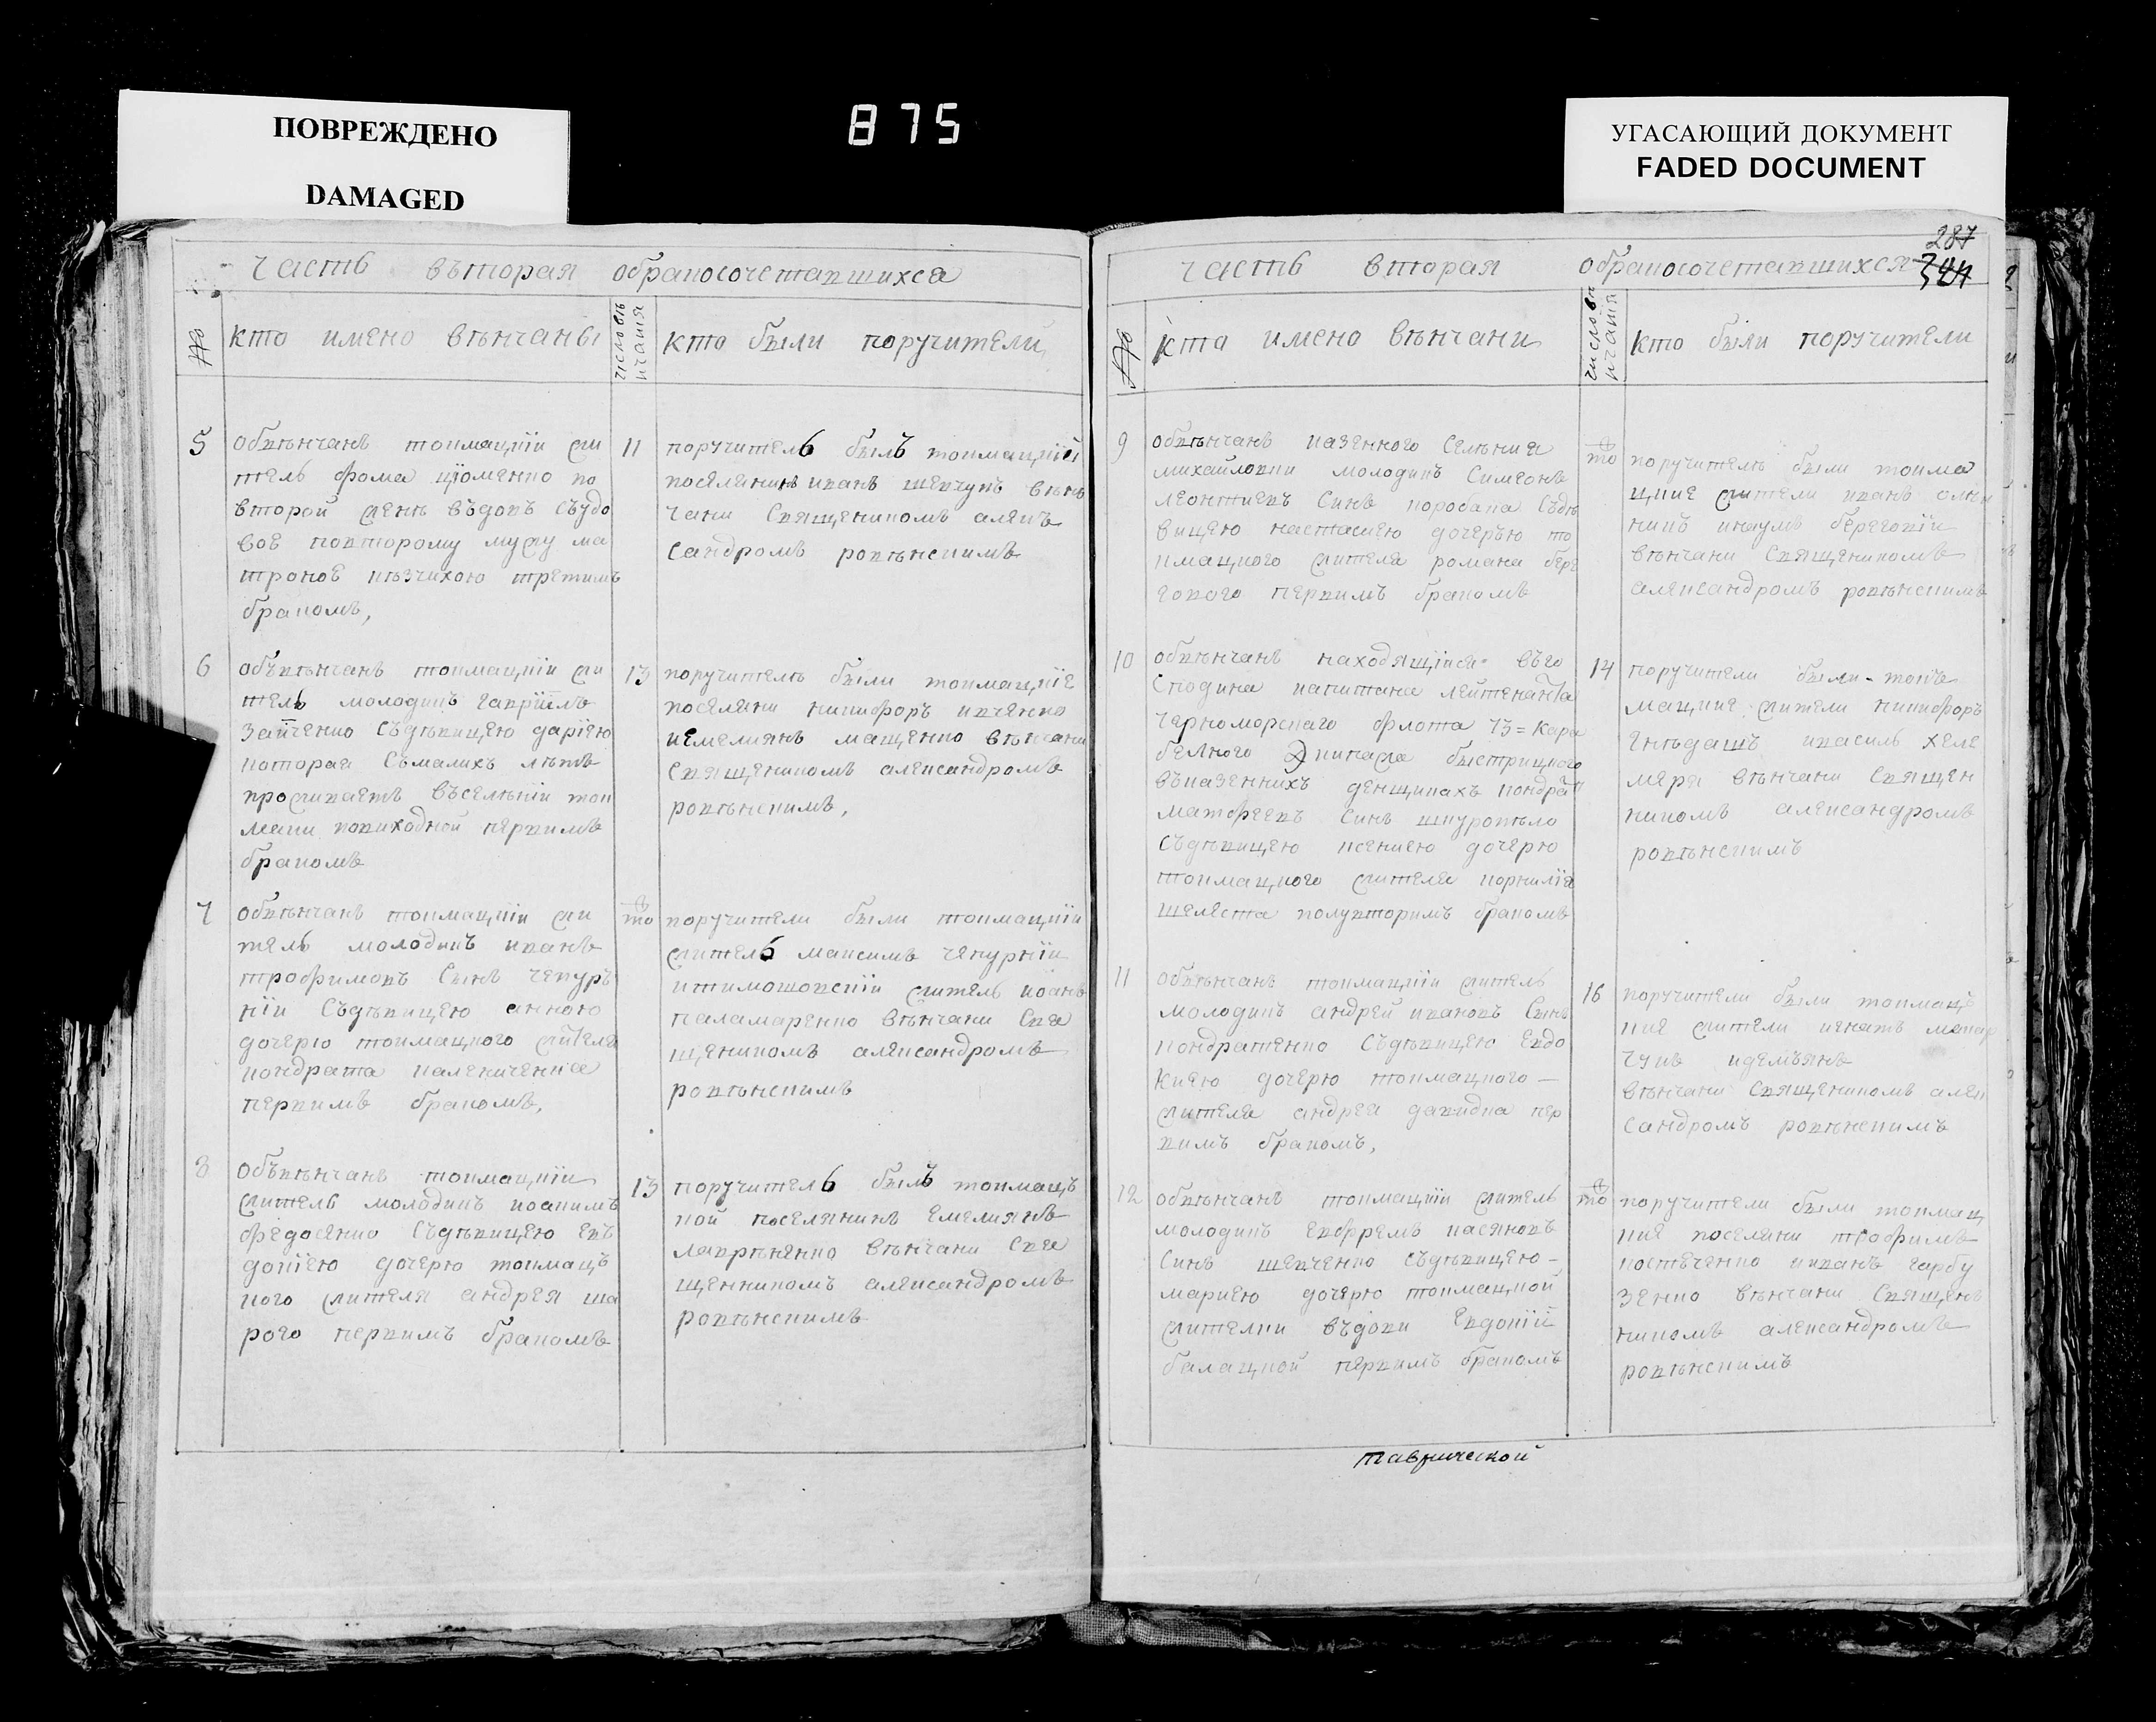 ПОВРЕЖДЕНО
DAMAGED
875
УГАСАЮЩИЙ ДОКУМЕНТ
FADED DOCUMENT
часть въторая обракосочетавшихса
№
кто имено вѣнчаны
число вѣ
нчания
кто были поручители
5
обвѣнчанъ токмацкiи жи
тель фома цюменко по
второй женѣ въдовъ съудо
вое повторому мужу ма
троное третимъ
бракомъ,
11
поручитель былъ токмацкiй
поселянинъ иванъ шевчукъ вѣнъ
чани священикомъ алекъ
сандромъ ровѣнскимъ
6
объвѣнчанъ токмацкiи жи
тель молодикъ гаврiилъ
заиченко съдѣвицею дариею
которая съмалихъ лѣтъ
проживаетъ въселѣнiи ток
маки первимъ
бракомъ
13
поручителѣ были токмацкiе
поселяни никифоръ ивченко
иемелиянъ мащенко вѣнчани
священикомъ александромъ
ровѣнскимъ,
7
обвѣнчанъ токмацкiи жи
тель молодикъ иванъ
трофимовъ сынъ чепуръ
нiи съдѣвицею анною
дочерю токмацкого жителя
кондрата
первимъ бракомъ,
то
поручители были токмацкiи
житель максимъ чепурнiи
итимошовскiи житель иоанъ
паламаренко вѣнчани свя
щеникомъ александромъ
ровѣнскимъ
8
объвѣнчанъ токмацкiи
житель молодикъ иоакимъ
федосенко съдѣвицею евъ
докiею дочерю токмацъ
кого жителя андрея ша
рого первимъ бракомъ
13
поручитель былъ токмацъ
кой поселянинъ емелиянъ
лаврѣненко вѣнчани свя
щенникомъ александромъ
ровѣнскимъ
287
часть вторая обракосочетавшихся
№
кто имено вѣнчани
число вѣ
нчания
кто были поручители
9
обвѣнчанъ казенного селѣния
михайловки молодикъ симеонъ
леонтиевъ синъ коробака съдѣ
вицею настасиею дочеръю то
кмацкого жителя романа бере
гового первимъ бракомъ
то
поручителѣ были токма
цкие жители иванъ олѣй
никъ инаумъ береговiи
вѣнчани священикомъ
александромъ ровѣнскимъ
10
обвѣнчанъ находящiися въго
сподина капитана лейтенанта
черноморскаго флота 13= кара
белного экипажа быстрицкого
въказеннихъ денщикахъ кондрат
матфеевъ синъ шкуропѣло
съдѣвицею ксениею дочерю
токмацкого жителя корнилiя
шелеста полувторимъ бракомъ
14
поручители были токъ
мацкие жители никифоръ
гнѣдашъ ивасиль хеле
меря вѣнчани священ
никомъ александромъ
ровѣнскимъ
11
обвѣнчанъ токмацкiи житель
молодикъ андрей ивановъ сынъ
кондратенко съдѣвицею евдо
киею дочерю токмацкого —
жителя андрея давидка пер
вимъ бракомъ,
16
поручители были токмацъ
кие жители игнатъ макар
чукъ идемъянъ
вѣнчани священикомъ алек
сандромъ ровѣнскимъ
12
обвѣнчанъ токмацкiи житель
молодикъ евфремъ касяновъ
синъ шевченко съдѣвицею —
мариею дочерю токмацкой
жителки въдови евдокiй
балацкой первимъ бракомъ
то
поручители были токмац
кие поселяни трофимъ
костѣченко ииванъ гарбу
зенко вѣнчани священъ
никомъ александромъ
ровѣнскимъ
таврической